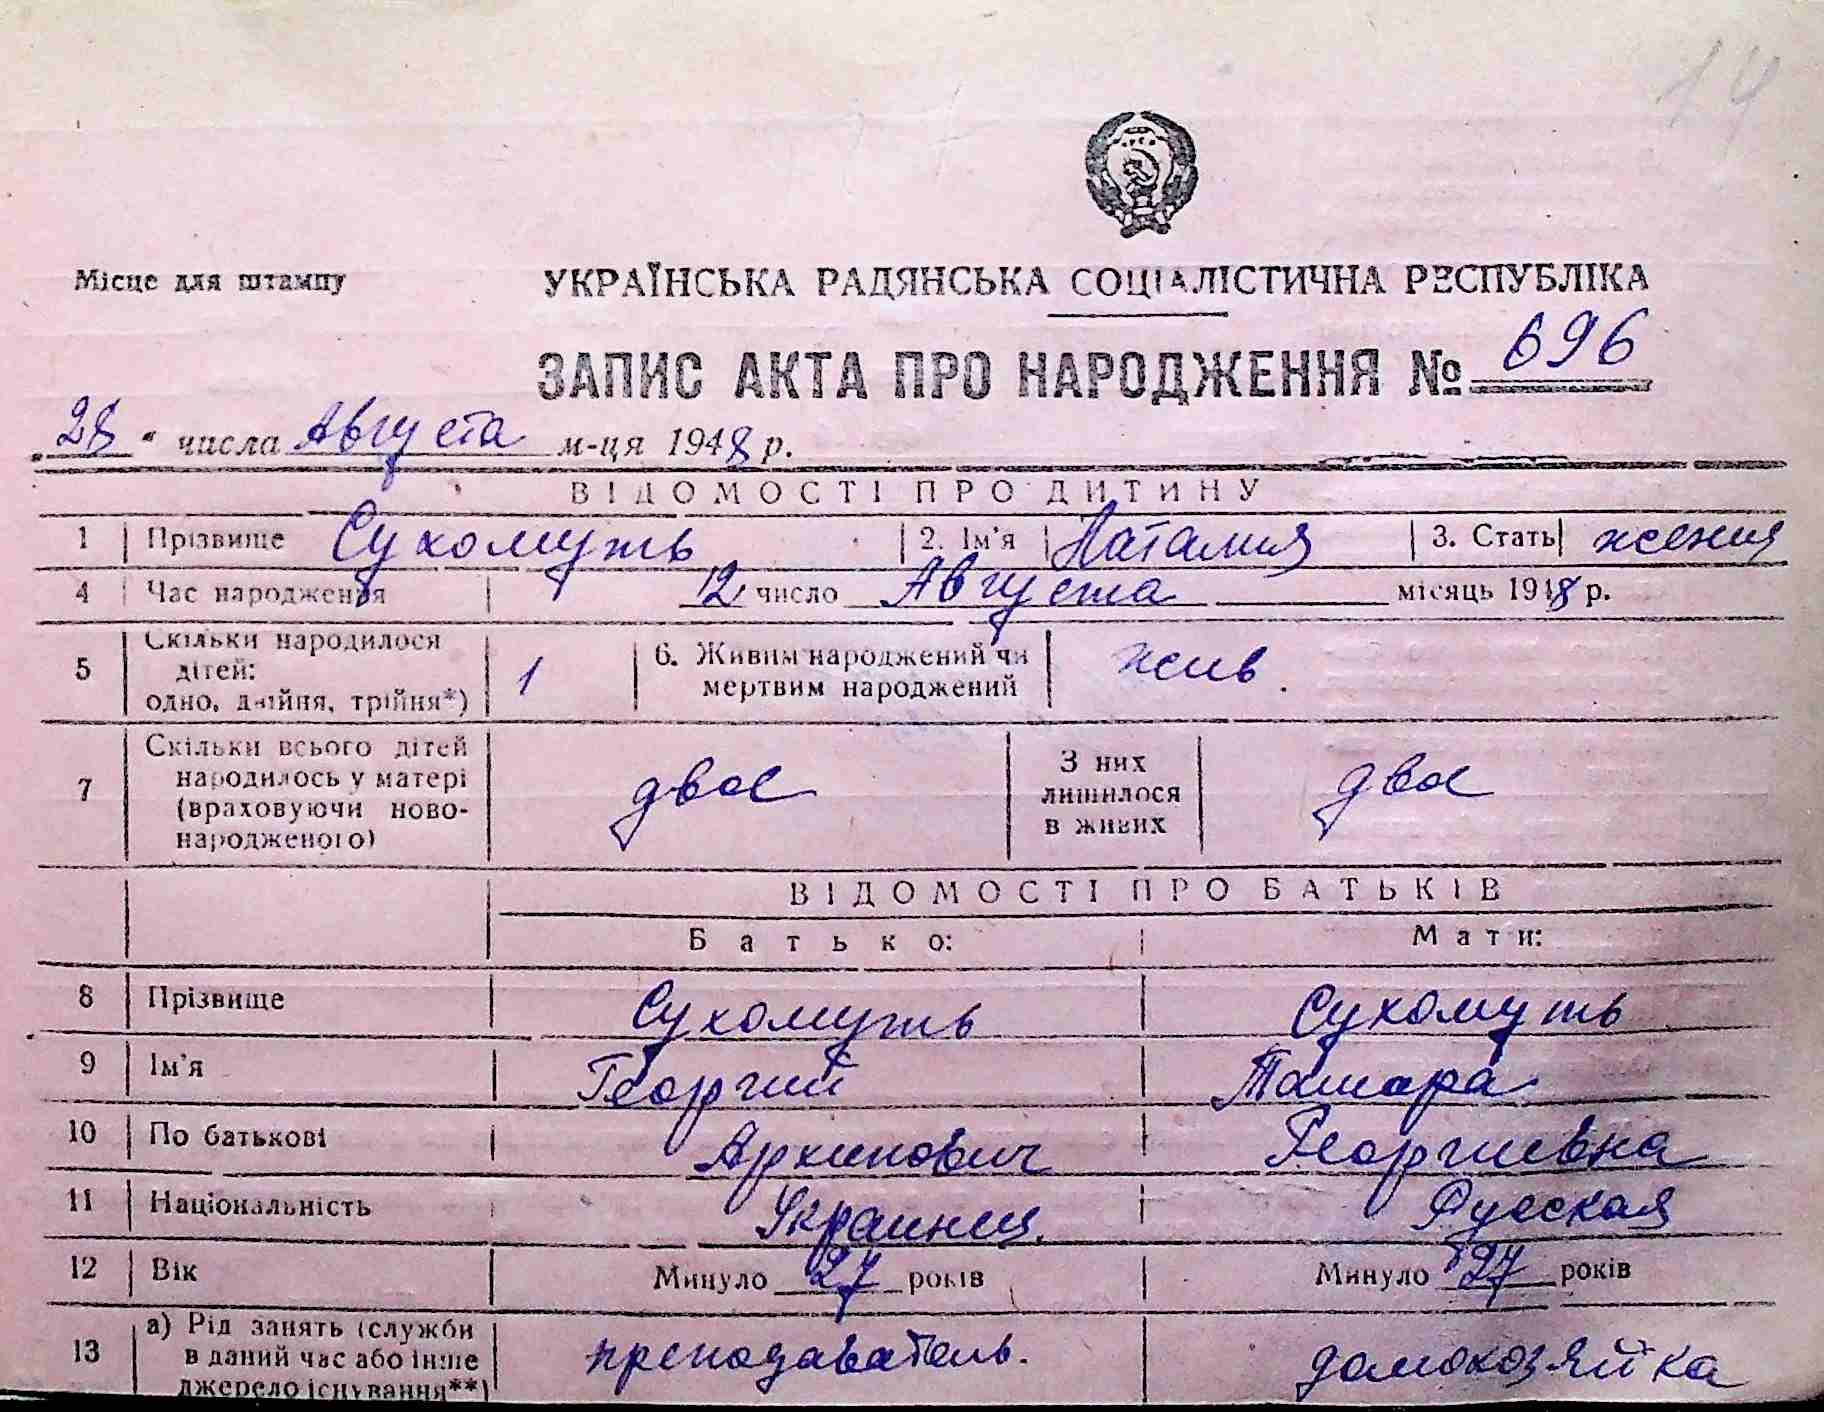 14
Місце для штампу
УКРАЇНСЬКА РАДЯНСЬКА СОЦІАЛІСТИЧНА РЕСПУБЛІКА
ЗАПИС АКТА ПРО НАРОДЖЕННЯ № 696
„28“ числа Августа м-ця 1948 р.
ВІДОМОСТІ ПРО ДИТИНУ
1 Прізвище Сухомуть 2. Ім'я Наталия 3. Стать жения
4 Час народження 12 число Августа місяць 1948 р.
5 Скільки народилося дітей: одно, двійня, трійня*) 1 6. Живим народжений чи мертвим народжений жив.
7 Скільки всього дітей народилось у матері (враховуючи ново-народженого) двое З них лишилося в живих двое
ВІДОМОСТІ ПРО БАТЬКІВ
Батько: Мати:
8 Прізвище Сухомуть Сухомуть
9 Ім'я Георгий Тамара
10 По батькові Архипович Георгиевна
11 Національність Украинец. Русская
12 Вік Минуло 27 років Минуло 27 років
13 а) Рід занять (служби в даний час або інше джерело існування**) преподаватель. домохозяйка